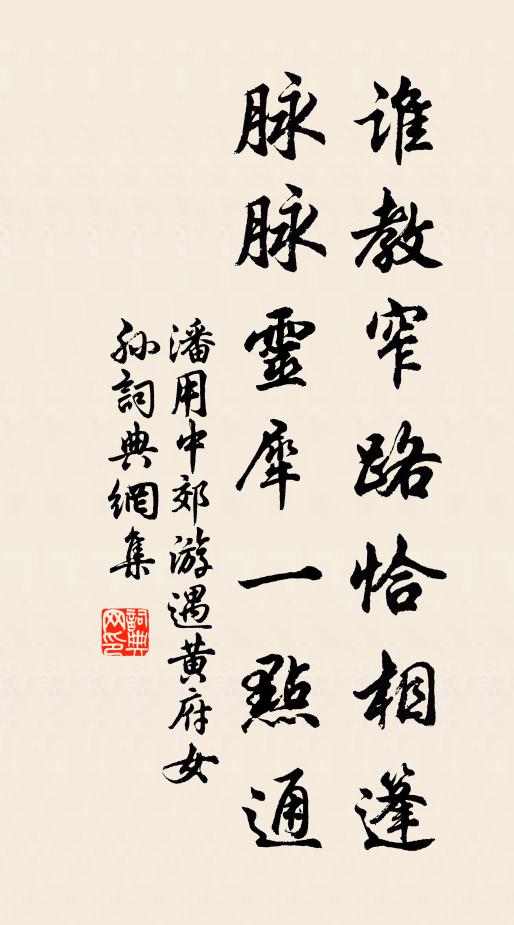 誰教窄路恰相蓬
脉脉靈犀一點通
潘用中郊游遇黃府女
孙詞典網集
詞典网印